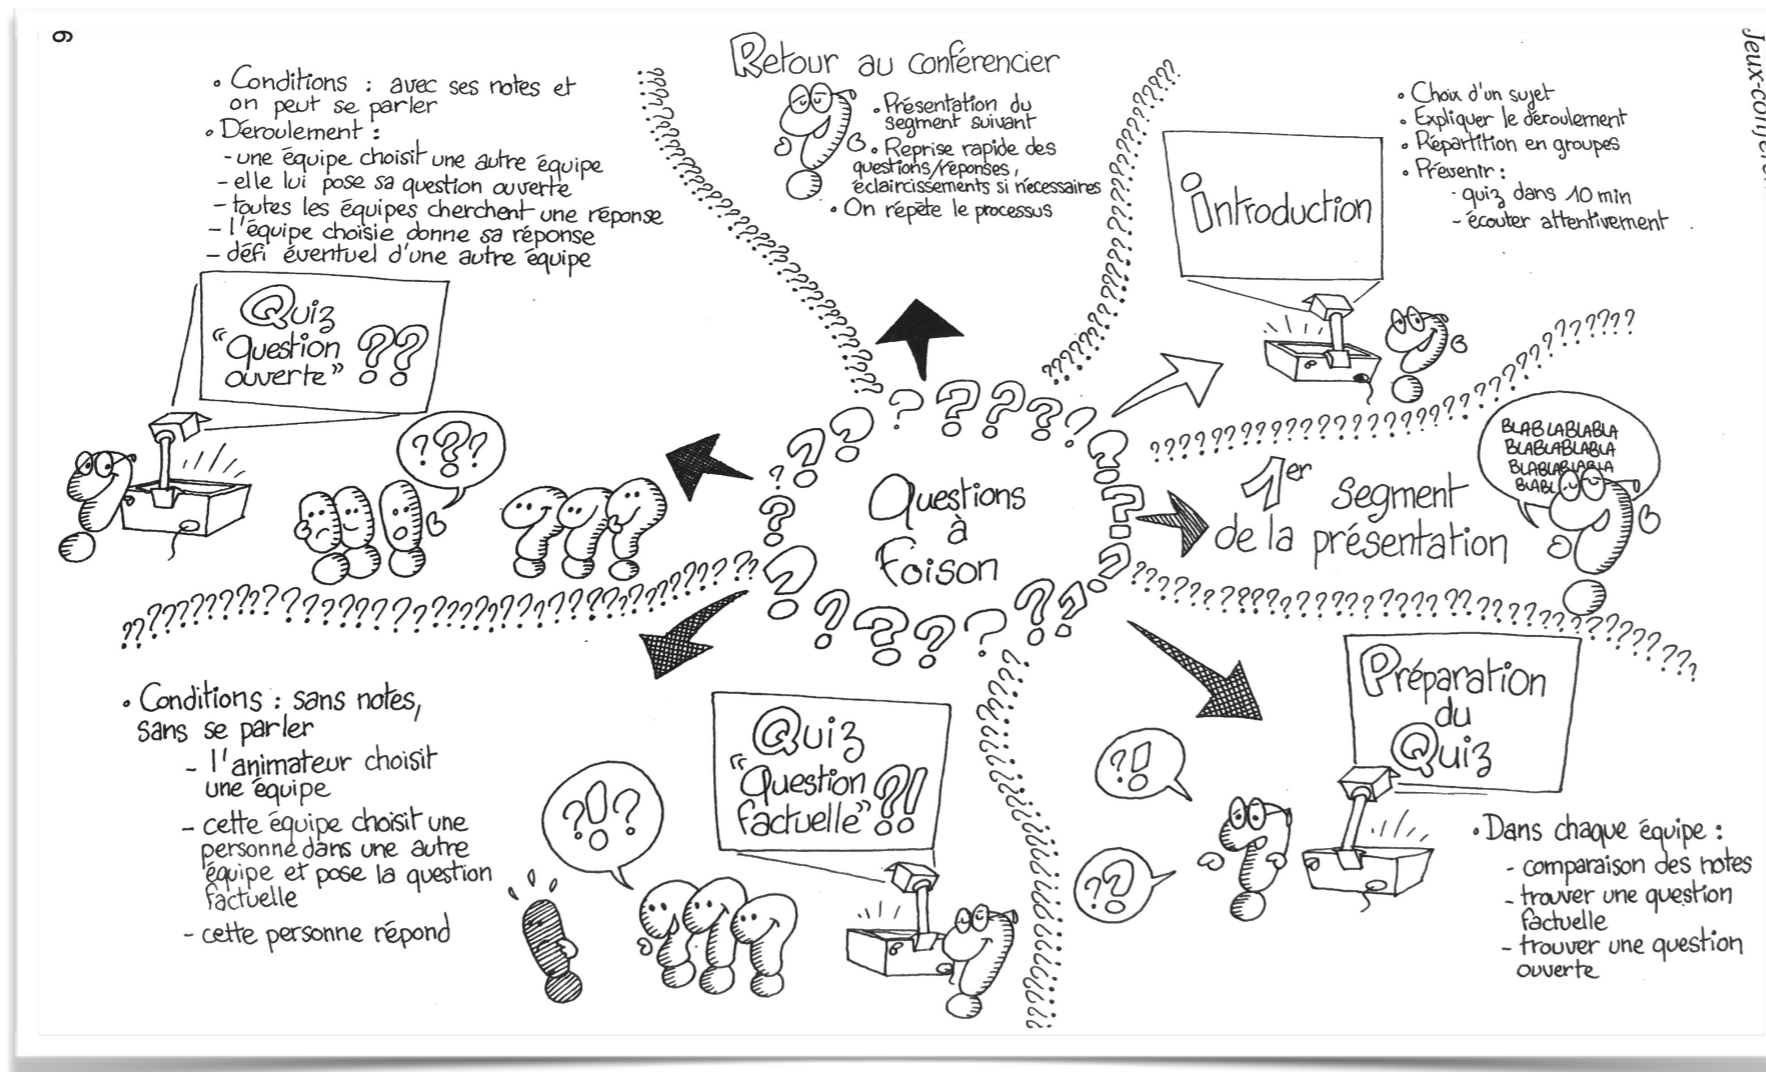 6
Jeux-confére
Questions
à
Foison
Introduction
• Choix d'un sujet
• Expliquer le déroulement
• Répartition en groupes
• Prévenir :
- quiz dans 10 min
- écouter attentivement
1er segment
de la présentation
BLABLABLABLA
BLABLABLABLA
BLABLABLABLA
BLABL
Préparation
du
Quiz
?!
??
• Dans chaque équipe :
- comparaison des notes
- trouver une question
factuelle
- trouver une question
ouverte
Quiz
"Question
factuelle" ?!
?!?
• Conditions : sans notes,
sans se parler
- l'animateur choisit
une équipe
- cette équipe choisit une
personne dans une autre
équipe et pose la question
factuelle
- cette personne répond
Quiz
"Question
ouverte" ??
???
• Conditions : avec ses notes et
on peut se parler
• Déroulement :
- une équipe choisit une autre équipe
- elle lui pose sa question ouverte
- toutes les équipes cherchent une réponse
- l'équipe choisie donne sa réponse
- défi éventuel d'une autre équipe
Retour au conférencier
• Présentation du
segment suivant
• Reprise rapide des
questions/réponses,
éclaircissements si nécessaires
• On répète le processus